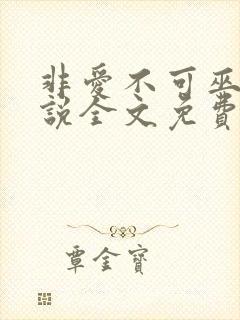 非愛不可巫
說全文免費
覃金寶